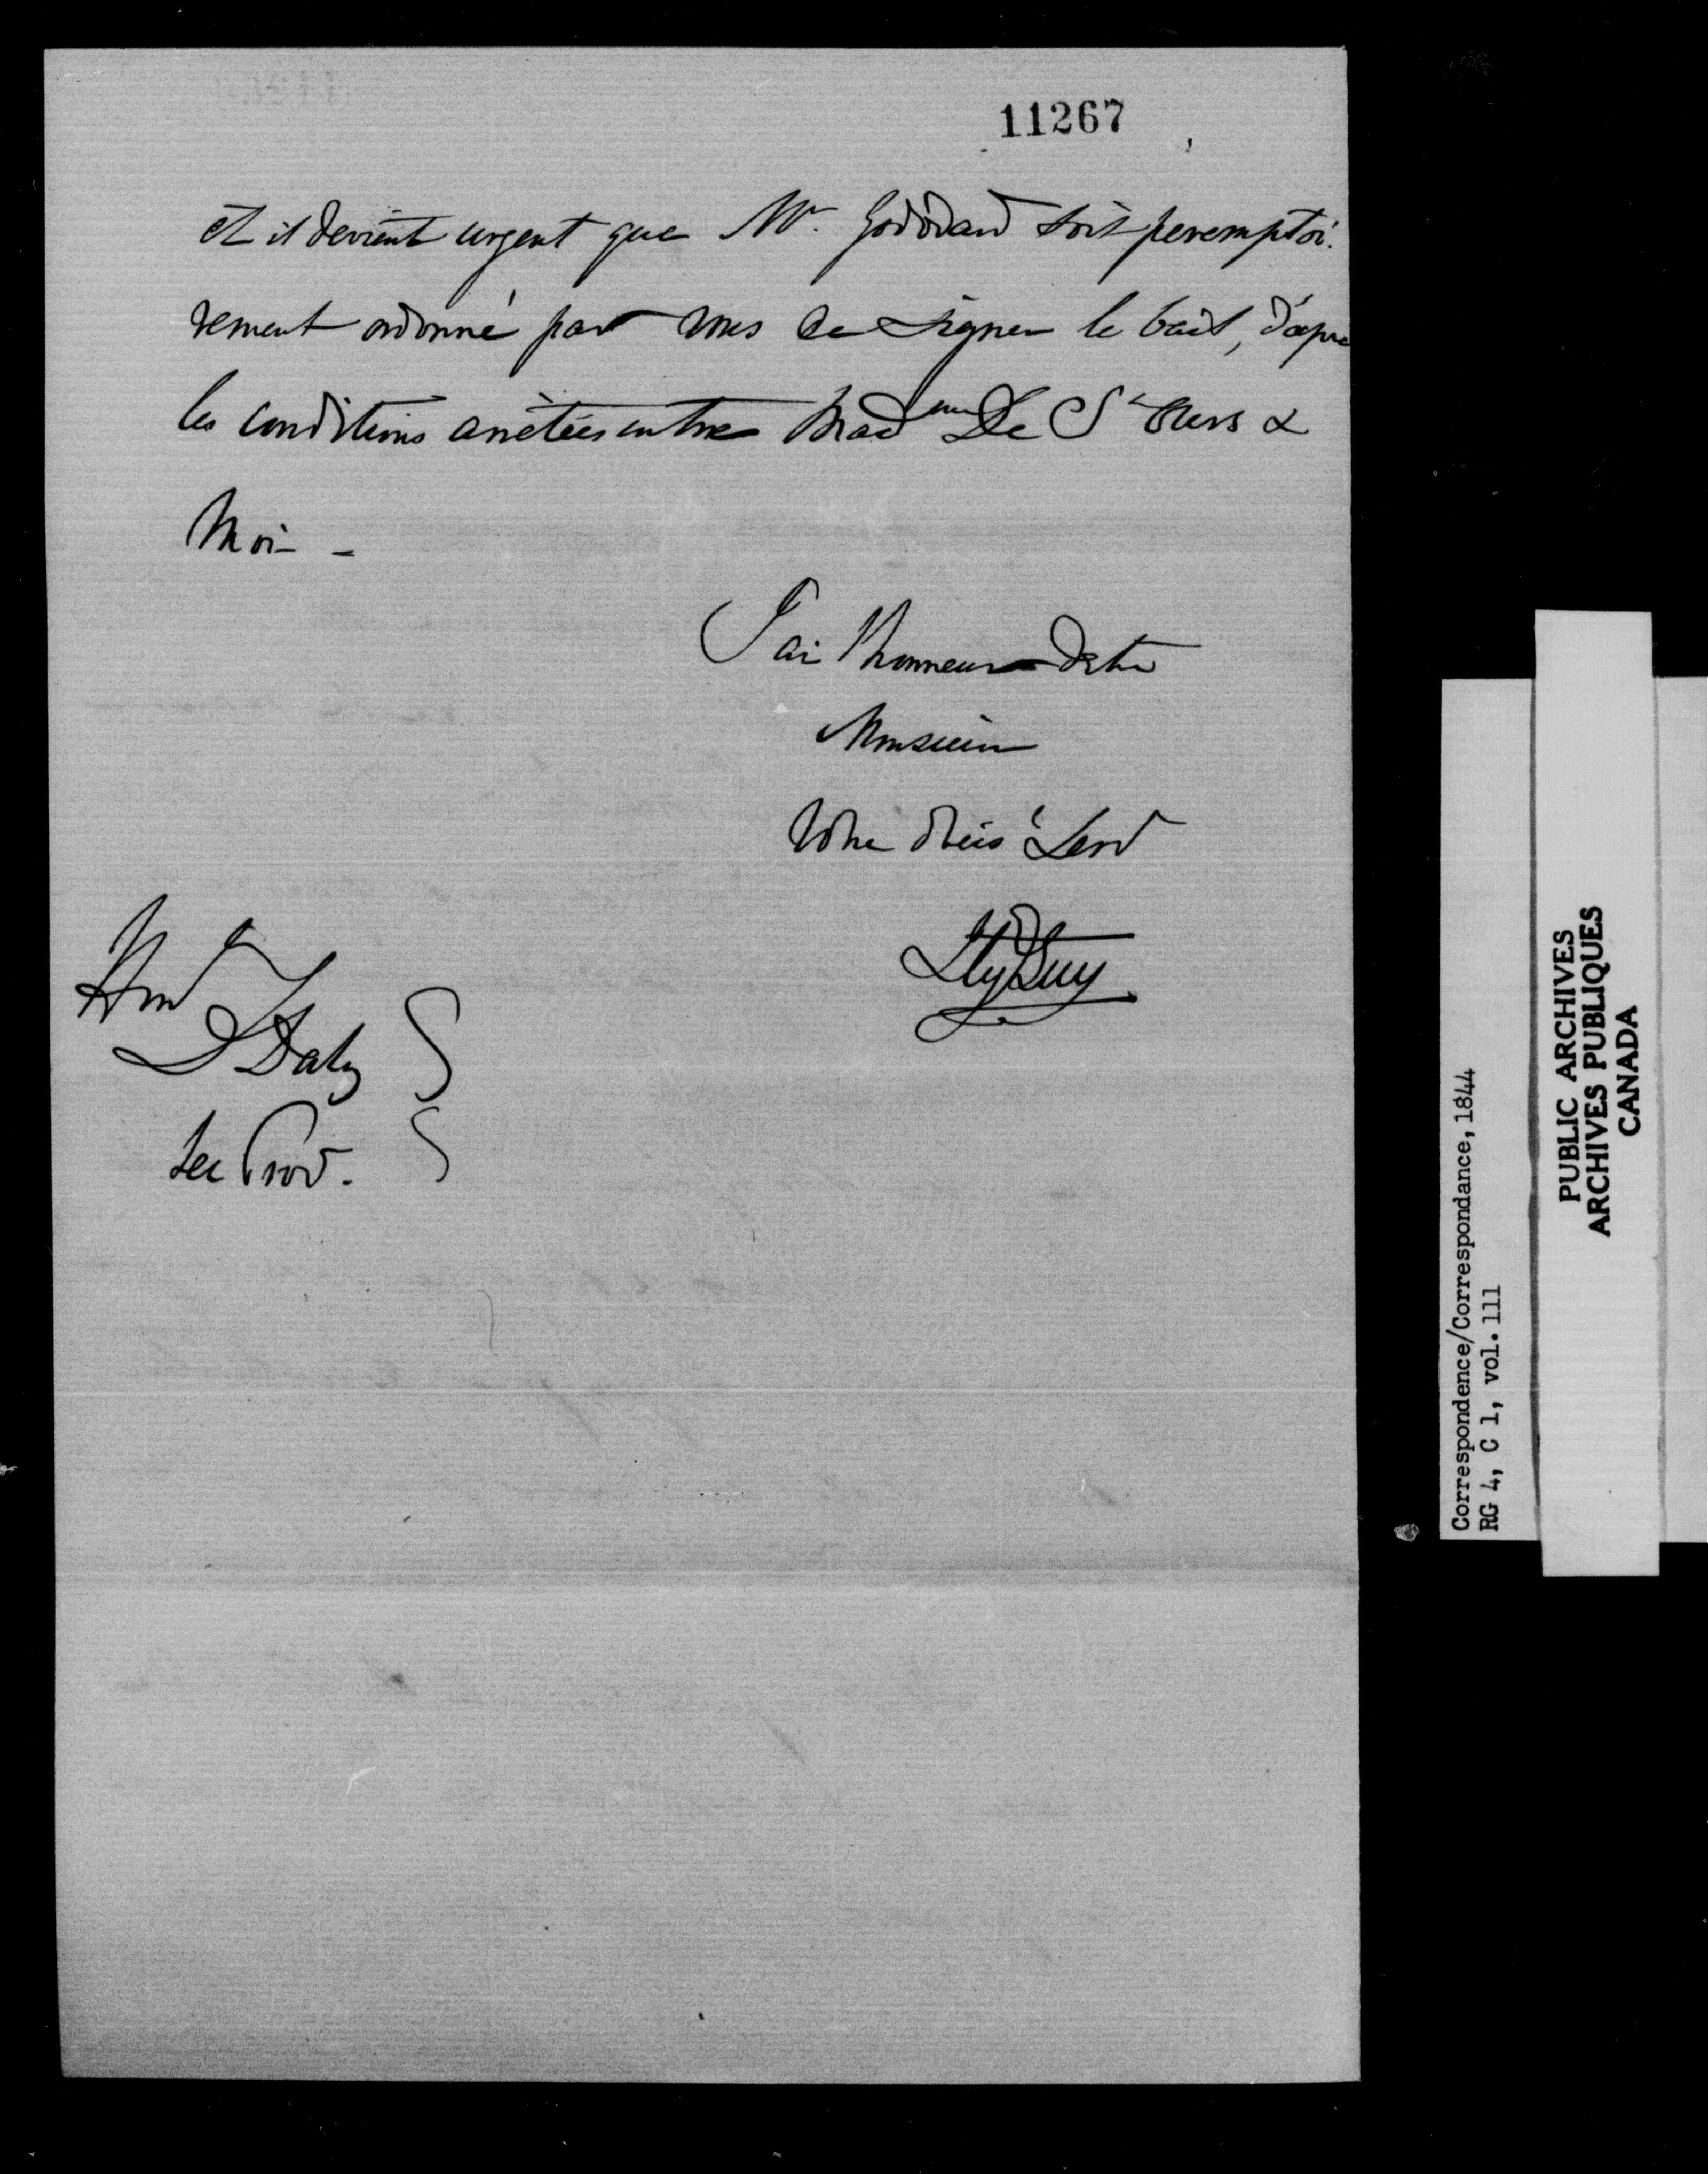 11267
et il devient urgent que Mr. Goddard soit peremptoi-
rement ordonné par vous de signer le bail, d'après
les conditions arrêtées entre Madme De St Ours &
Moi -
J'ai l'honneur d'etre
Monsieur
Votre obéist Serv
Hy Guy
Honl
D Daly
Sec Prov.
Correspondence/Correspondance, 1844
RG 4, C 1, vol. 111
PUBLIC ARCHIVES
ARCHIVES PUBLIQUES
CANADA